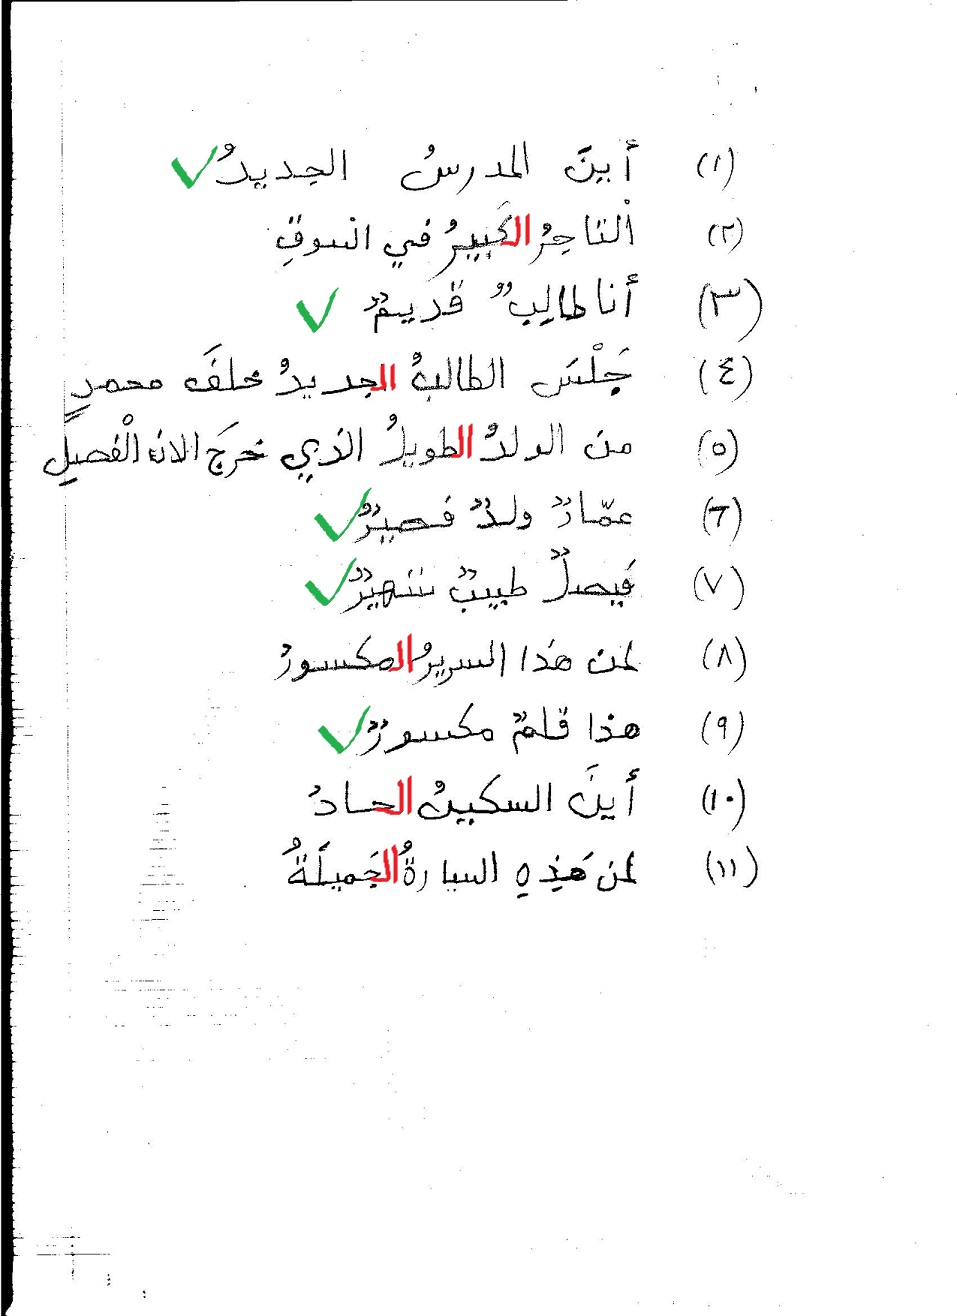 (١) أينَ المدرسُ الجديدُ
(٢) ألتاجِرُ الكَبِيرُ في السوقِ
(٣) أنا طالِبٌ قديمٌ
(٤) جَلْسَ الطالبُ الجديدُ خلفَ محمدٍ
(٥) من الولدُ الطويلُ الذي خرجَ الان الْفصلِ
(٦) عمّارٌ ولدٌ قصيرٌ
(٧) فَيصلٌ طبيبٌ شهيرٌ
(٨) لمن هذا السريرُ المكسورُ
(٩) هذا قلمٌ مكسورٌ
(١٠) أينَ السكينُ الحادُ
(١١) لمن هَذِهِ السيارةُ الجَميلَةُ